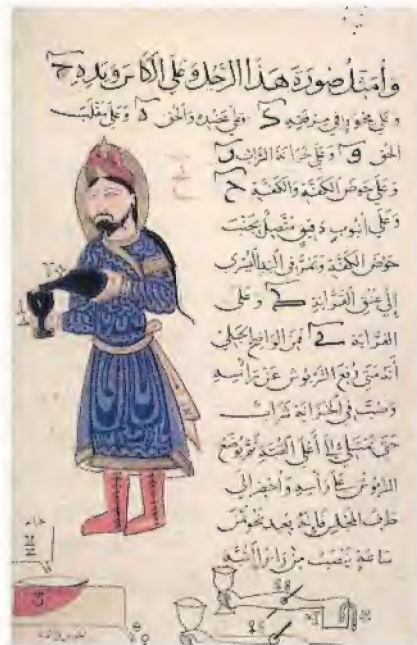 وأمثل صورة هذا الرجل وعلى الكأس ويده ح
وعلى محور في مرفقه ك وعلى عضده والحق ه وعلى مقلب
الحق و وعلى خزانة الشراب ر
وعلى حوض الكفة والكفة ح
وعلى أنبوب دقيق متصل بجنب
حوض الكفة ويمر في اليد اليسرى
إلى عنق القرابة ط وعلى
القرابة ي فمن الواضح الجلي
أنه متى رفع الشربوش عن رأسه
وصب في الخزانة شراب
حتى تمتلي إلى أعلى القبة ثم يوضع
الشربوش على رأسه وأحضر إلى
طرف المجلس فإنه بعد نحو من
ساعة ينصب من